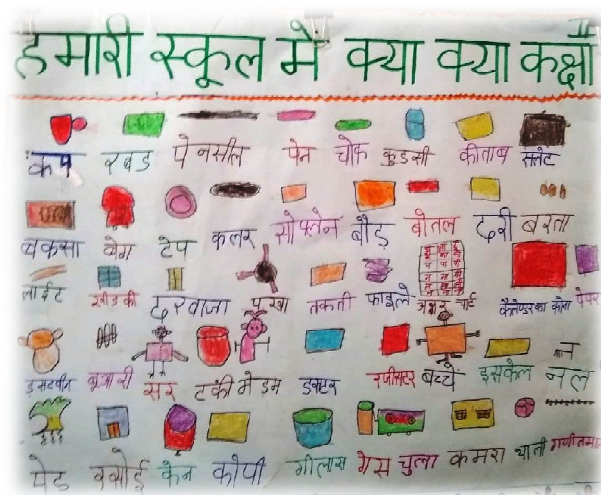 हमारी स्कूल में क्या क्या कक्षा
कप रबड पेनसील पेन चोक कुडसी कीताब सलेट
बकसा बेग टेप कलर सोफ्लेन बौट़ बोतल दरी बरता
लाईट खीडकी दरवाजा पंखा तकती फाइले अक्षर चार्ड कैलेण्डर का कोना पेपर
डसटबीन बूआरी सर टंकी मेडम डक्टर रजीसटर बच्चें इसकेल नल
पेड रसोई केन कोपी गीलास गेस चुला कमरा थाली गणीतमाला